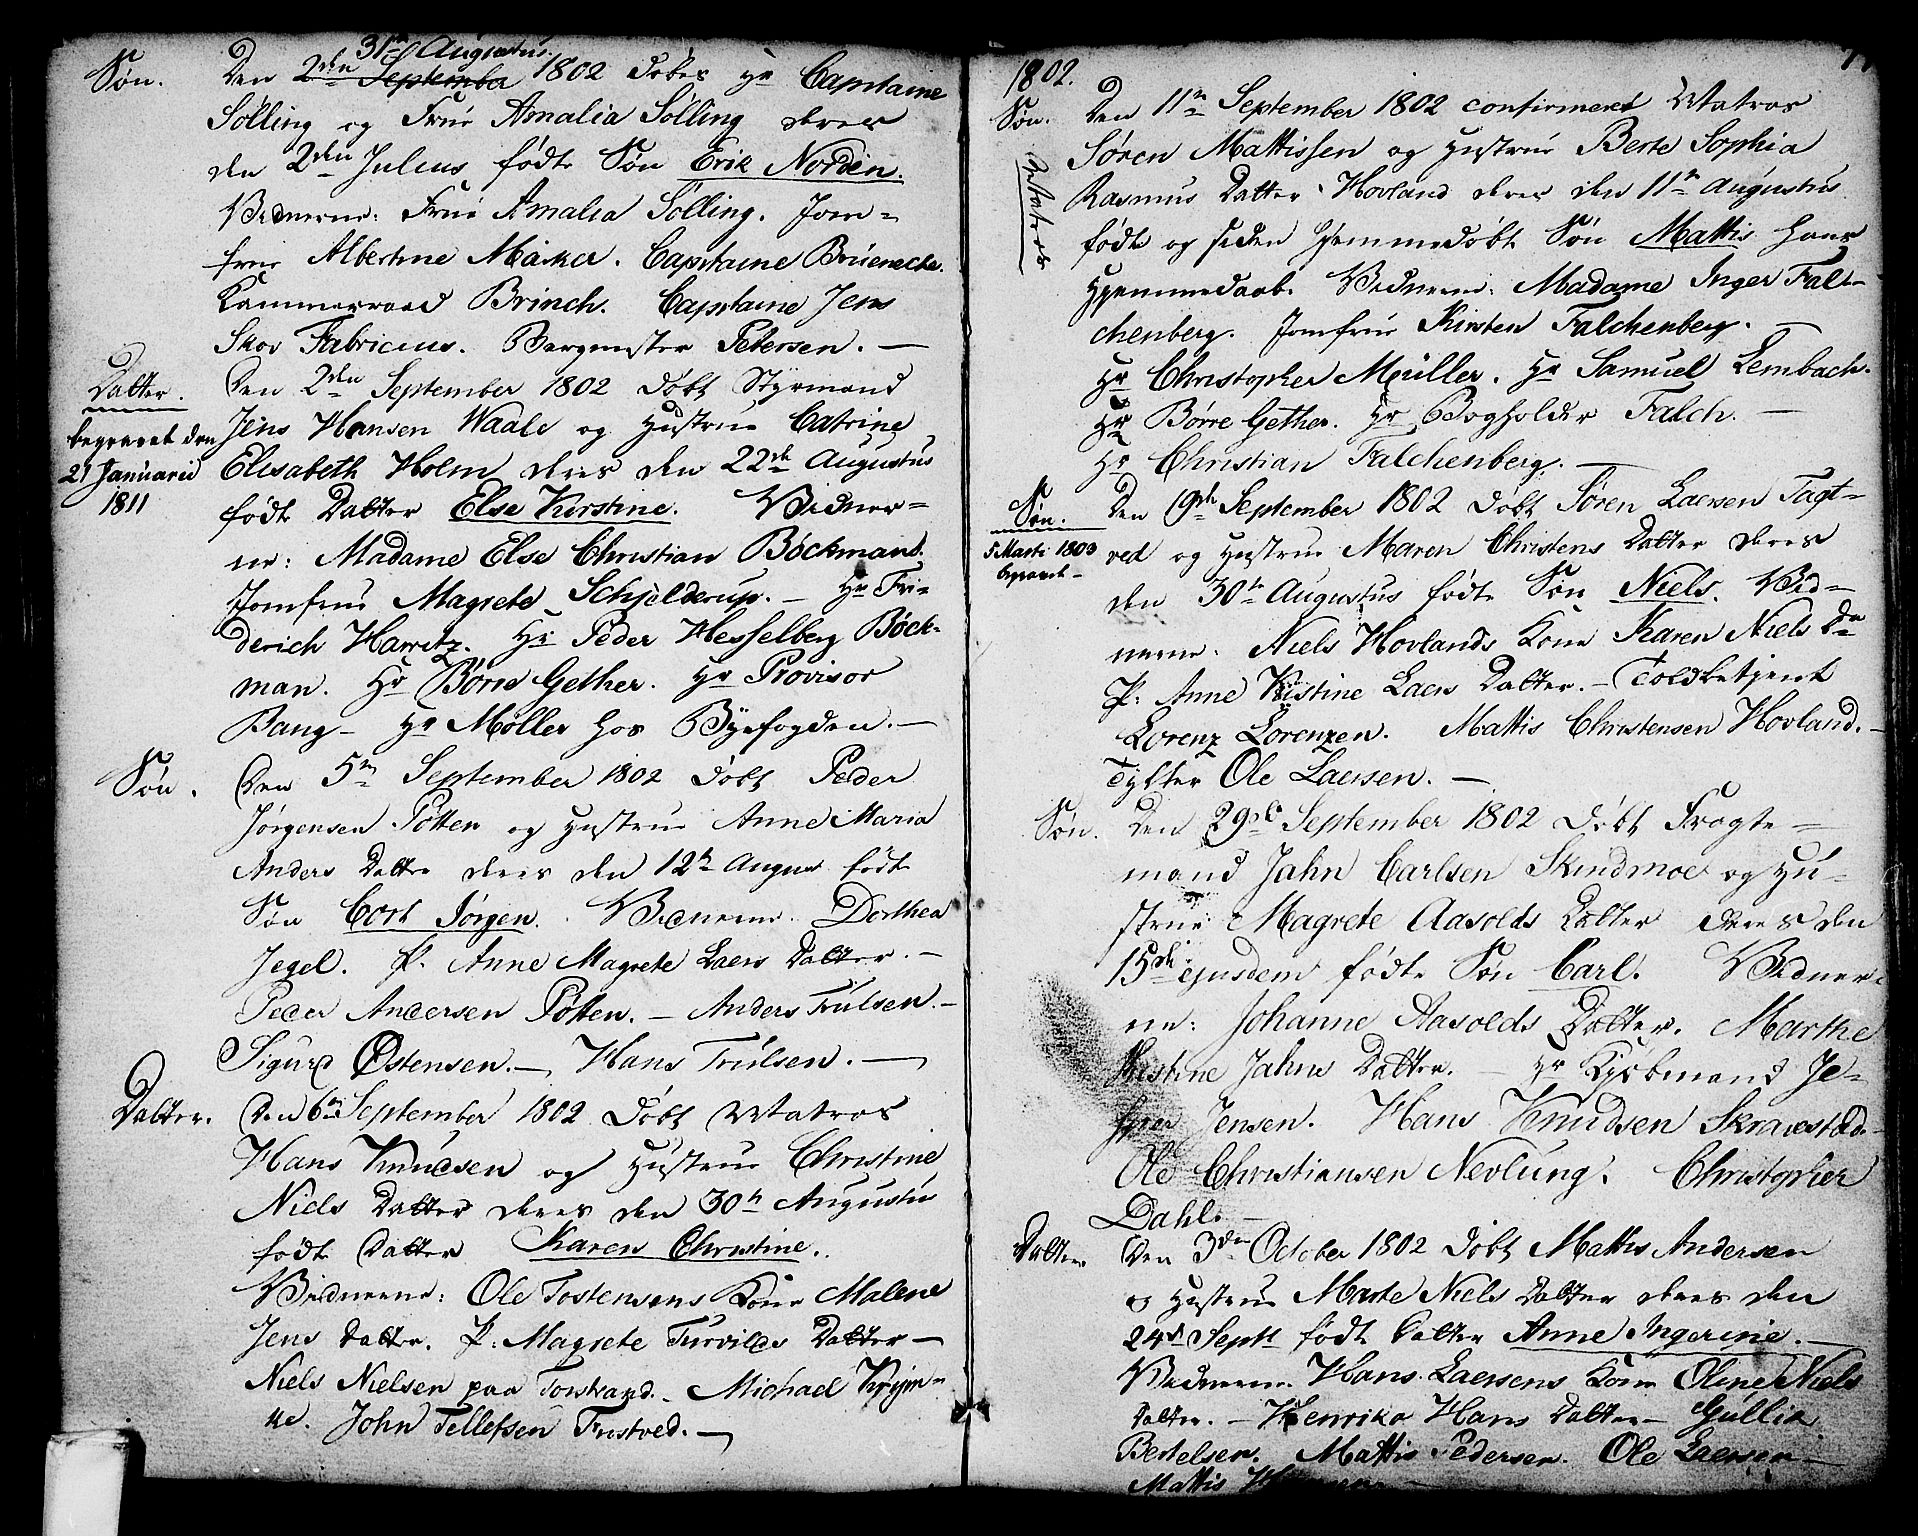 31te Augustus
Søn. Den 2den September 1802 døbes Hr Capitaine
Sölling og Frue Amalia Sölling deres
den 2den Julius fødte Søn Erik Norden.
Vidnerne: Frue Amalia Sölling. Jom=
frue Albertine . Capitaine
Kammerraad Brinch. Capitaine Jens
Skov Fabricius. Borgmester Petersen. —
Datter. Den 2den September 1802 døbt Styrmand
begravet den Jens Hansen Waale og Hustrue Catrine
21 Januarii Elisabeth Holm deres den 22de Augustus
1811 fødte Datter Else Kirstine. Vidner=
ne: Madame Else Christian Böckmand.
Jomfrue Magrete Schjelderup. — Hr Fri=
derich . Hr Peder Hesselberg Böck=
man. Hr Börre Gether. Hr Provisor
Bang — Hr Møller hos Byefogden. —
Søn. Den 5te September 1802 døbt Peder
Jørgensen Pötten og Hustrue Anne Maria
Anders Datter deres den 12te August fødte
Søn Cort Jörgen. Vidnerne. Dorthea
Jegel. P. Anne Magrete Laers Datter. —
Peder Andersen Pötten. — Anders Trulsen. —
Sigurd Østensen. — Hans Trulsen. —
Datter. Den 6te September 1802 døbt Matros
Hans Knudsen og Hustrue Christine
Niels Datter deres den 30te Augustus
fødte Datter Karen Christine.
Vidnerne: Ole Tostensens Kone Malene
Jens Datter. P: Magrete Datter —
Niels Nielsen paa Torstrand. — Michael
John Tellefsen . —
1802.
Søn. Den 11te September 1802 confirmeret Matros
Søren Mattissen og Hustrue Berte Sophia
Rasmus Datter Hovland deres den 11te Augustus
fødte og siden hjemmedøbt Søn Mattis hans
Hjemmedaab. Vidnerne: Madame Inger Fal=
chenberg. Jomfrue Kirsten Falchenberg. —
Hr Christopher Müller. Hr Samuel Lembach.
Hr Børre Gether. Hr Bogholder Falch. —
Hr Christian Falchenberg. —
Søn. Den 19de September 1802 døbt Søren Laersen Tagt=
5 Marti 1803 ved og Hustrue Maren Christens Datter deres
begravet — den 30te Augustus fødte Søn Niels. Vid=
nerne. Niels Hovlands Kone Karen Niels Dr
P: Anne Kistine Laers Datter. — Toldbetjent
Lorenz Lorenzen. Mattis Christensen Hovland. —
Ole Laersen. —
Søn. Den 29de September 1802 døbt Fragte=
mand Jahn Carlsen Skindmoe og Hu=
strue Magrete Aasolds Datter deres den
15de ejusdem fødte Søn Carl. Vidner=
ne: Johanne Aasolds Datter. Marthe
Kistine Jahns Datter. — Hr Kjøbmand
Jensen. Hans Knudsen .
Ole Christiansen Nevlung. Christopher
Dahl. —
Datter. Den 3die October 1802 døbt Mattis Andersen
og Hustrue Marte Niels Datter deres den
24de Septr fødte Datter Anne Ingerine. —
Vidnerne. Hans Laersens Kone Oline Niels
Datter. — Henrika Hans Datter — Gullia
Bertelsen. Mattis Pedersen. Ole Laersen —
Mattis